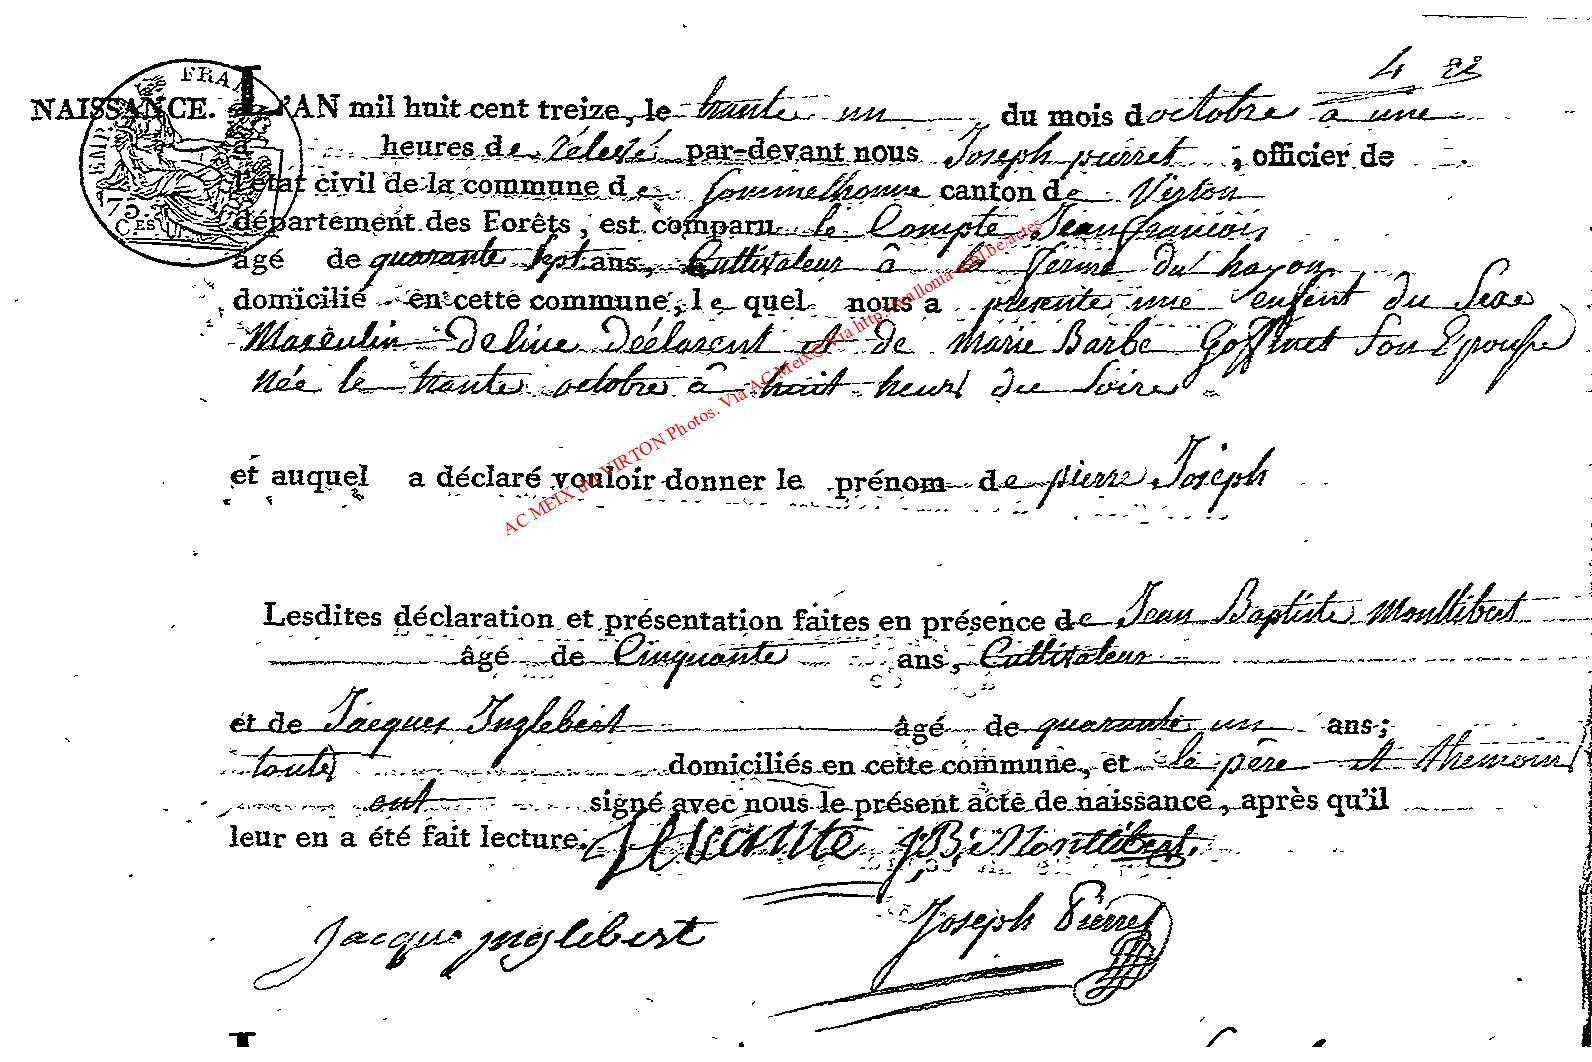 4
NAISSANCE. L'AN mil huit cent treize, le trante un du mois d octobre a une
à heures de rélevé par-devant nous Joseph pierret, officier de
l'état civil de la commune de Sommethonne canton de Virton
département des Forêts, est comparu le Compte Jean francois
âgé de quarante sept ans, Cultivateur â la ferme du hayon
domicilié en cette commune, le quel nous a présente une enfent du Sexe
Masculin de luie Déclarent et de Marie Barbe Goffinet Son Epouse
Née le trante octobre â huit heurs du Soire
et auquel a déclaré vouloir donner le prénom de pierre Joseph
Lesdites déclaration et présentation faites en présence de Jean Baptiste Montlibert
âgé de Cinquante ans, Cultivateur
et de Jacques Inglebert âgé de quarante un ans;
toutes domiciliés en cette commune, et le père et themoins
ont signé avec nous le présent acte de naissance, après qu'il
leur en a été fait lecture. J B Montlibert.
Jacque jnglebert Joseph Pierret
FRA
EMP.
75.
CES
AC MEIX dvt VIRTON Photos. Via AC Meix. Via http